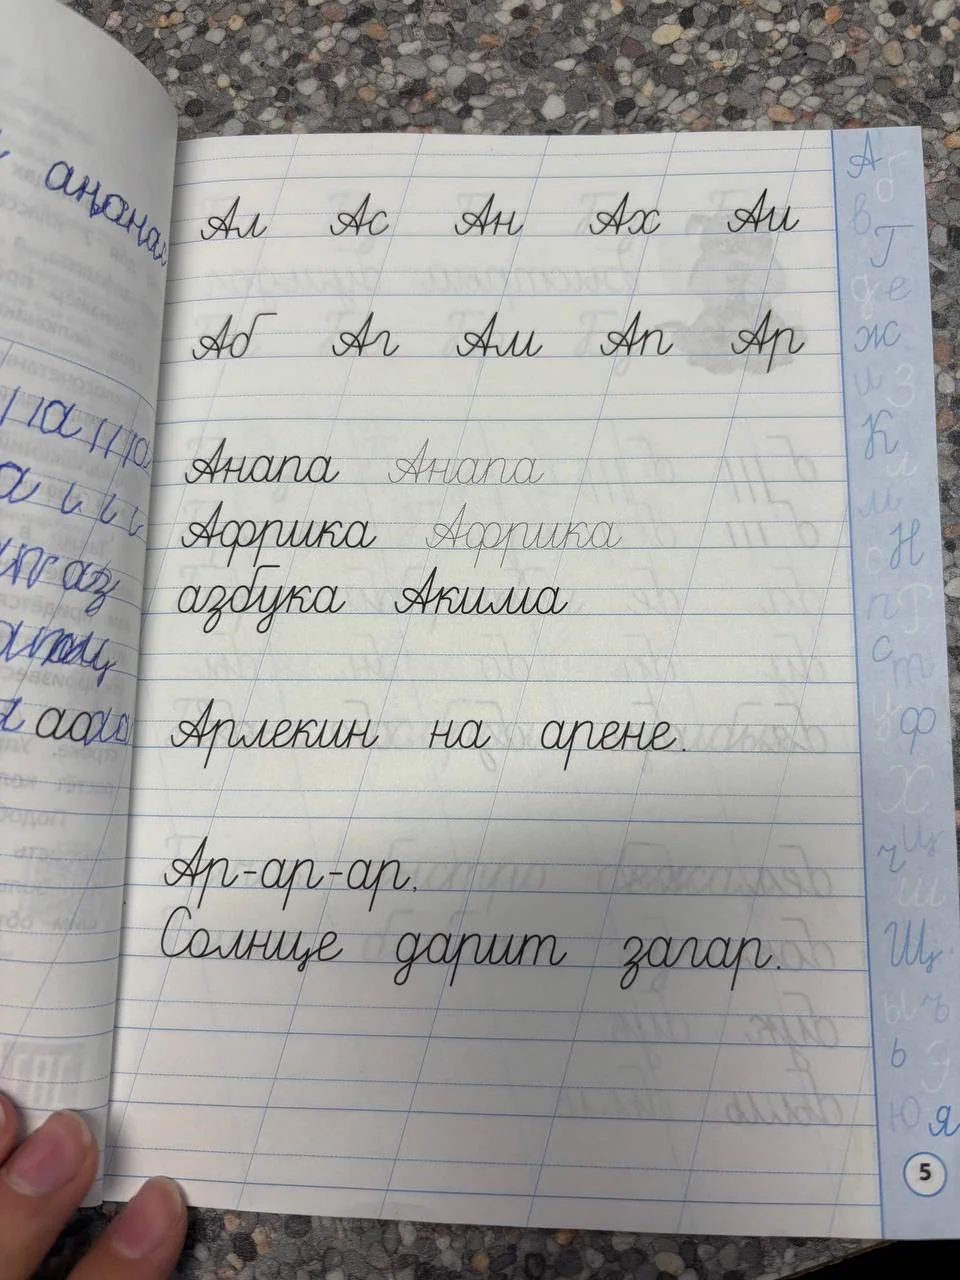 Ал Ас Ан Ах Аи
Аб Аг Ам Ап Ар
Анапа Анапа
Африка Африка
азбука Акима
Арлекин на арене.
Ар-ар-ар,
Солнце дарит загар.
А
б
в
Г
д е
ж
и З
К
л
м
о Н
п Р
с т
у ф
Х
ч Ц
ш
Щ
ы ъ
ь Э
Ю я
5